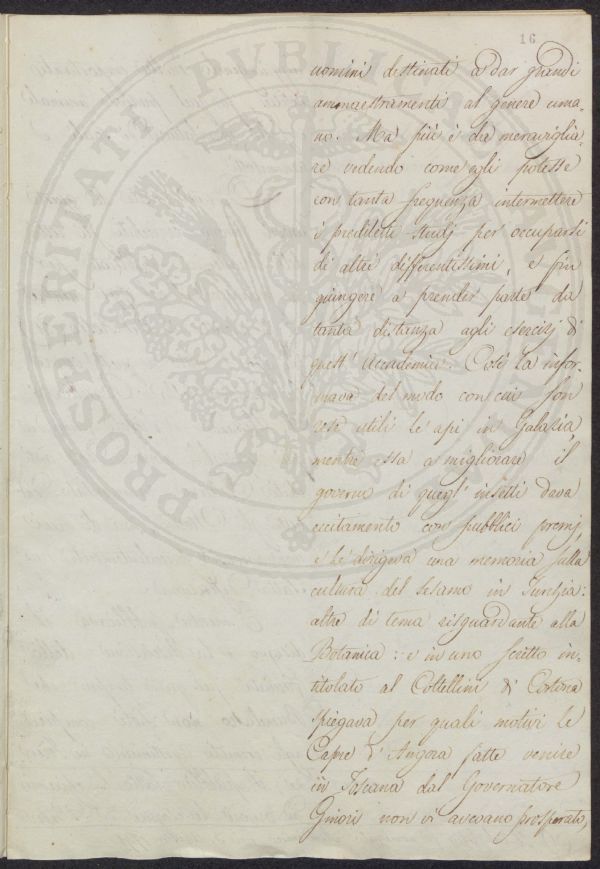 16
uomini destinati a dar grandi
ammaestramenti al genere uma-
no. Ma più è da meraviglia-
re vedendo come egli potesse
con tanta frequenza intermettere
i prediletti studj per occuparsi
di altri differentissimi, e fin
giungere a prender parte da
tanta distanza agli esercizj di
quest' Accademici. Così la infor-
mava del modo con cui son
rese utili le api in Galazia,
mentre essa a migliorare il
governo di quegl' insetti dava
eccitamento con pubblici premj,
e le dirigeva una memoria sulla
cultura del sesamo in Turchia:
altre di tema risguardante alla
Botanica: e in uno scritto in-
titolato al Coltellini di Cortona
spiegava per quali motivi le
Capre d'Angora fatte venire
in Toscana dal Governatore
Ginori non vi avevano prosperato,
PROSPERITATI PUBLICAE